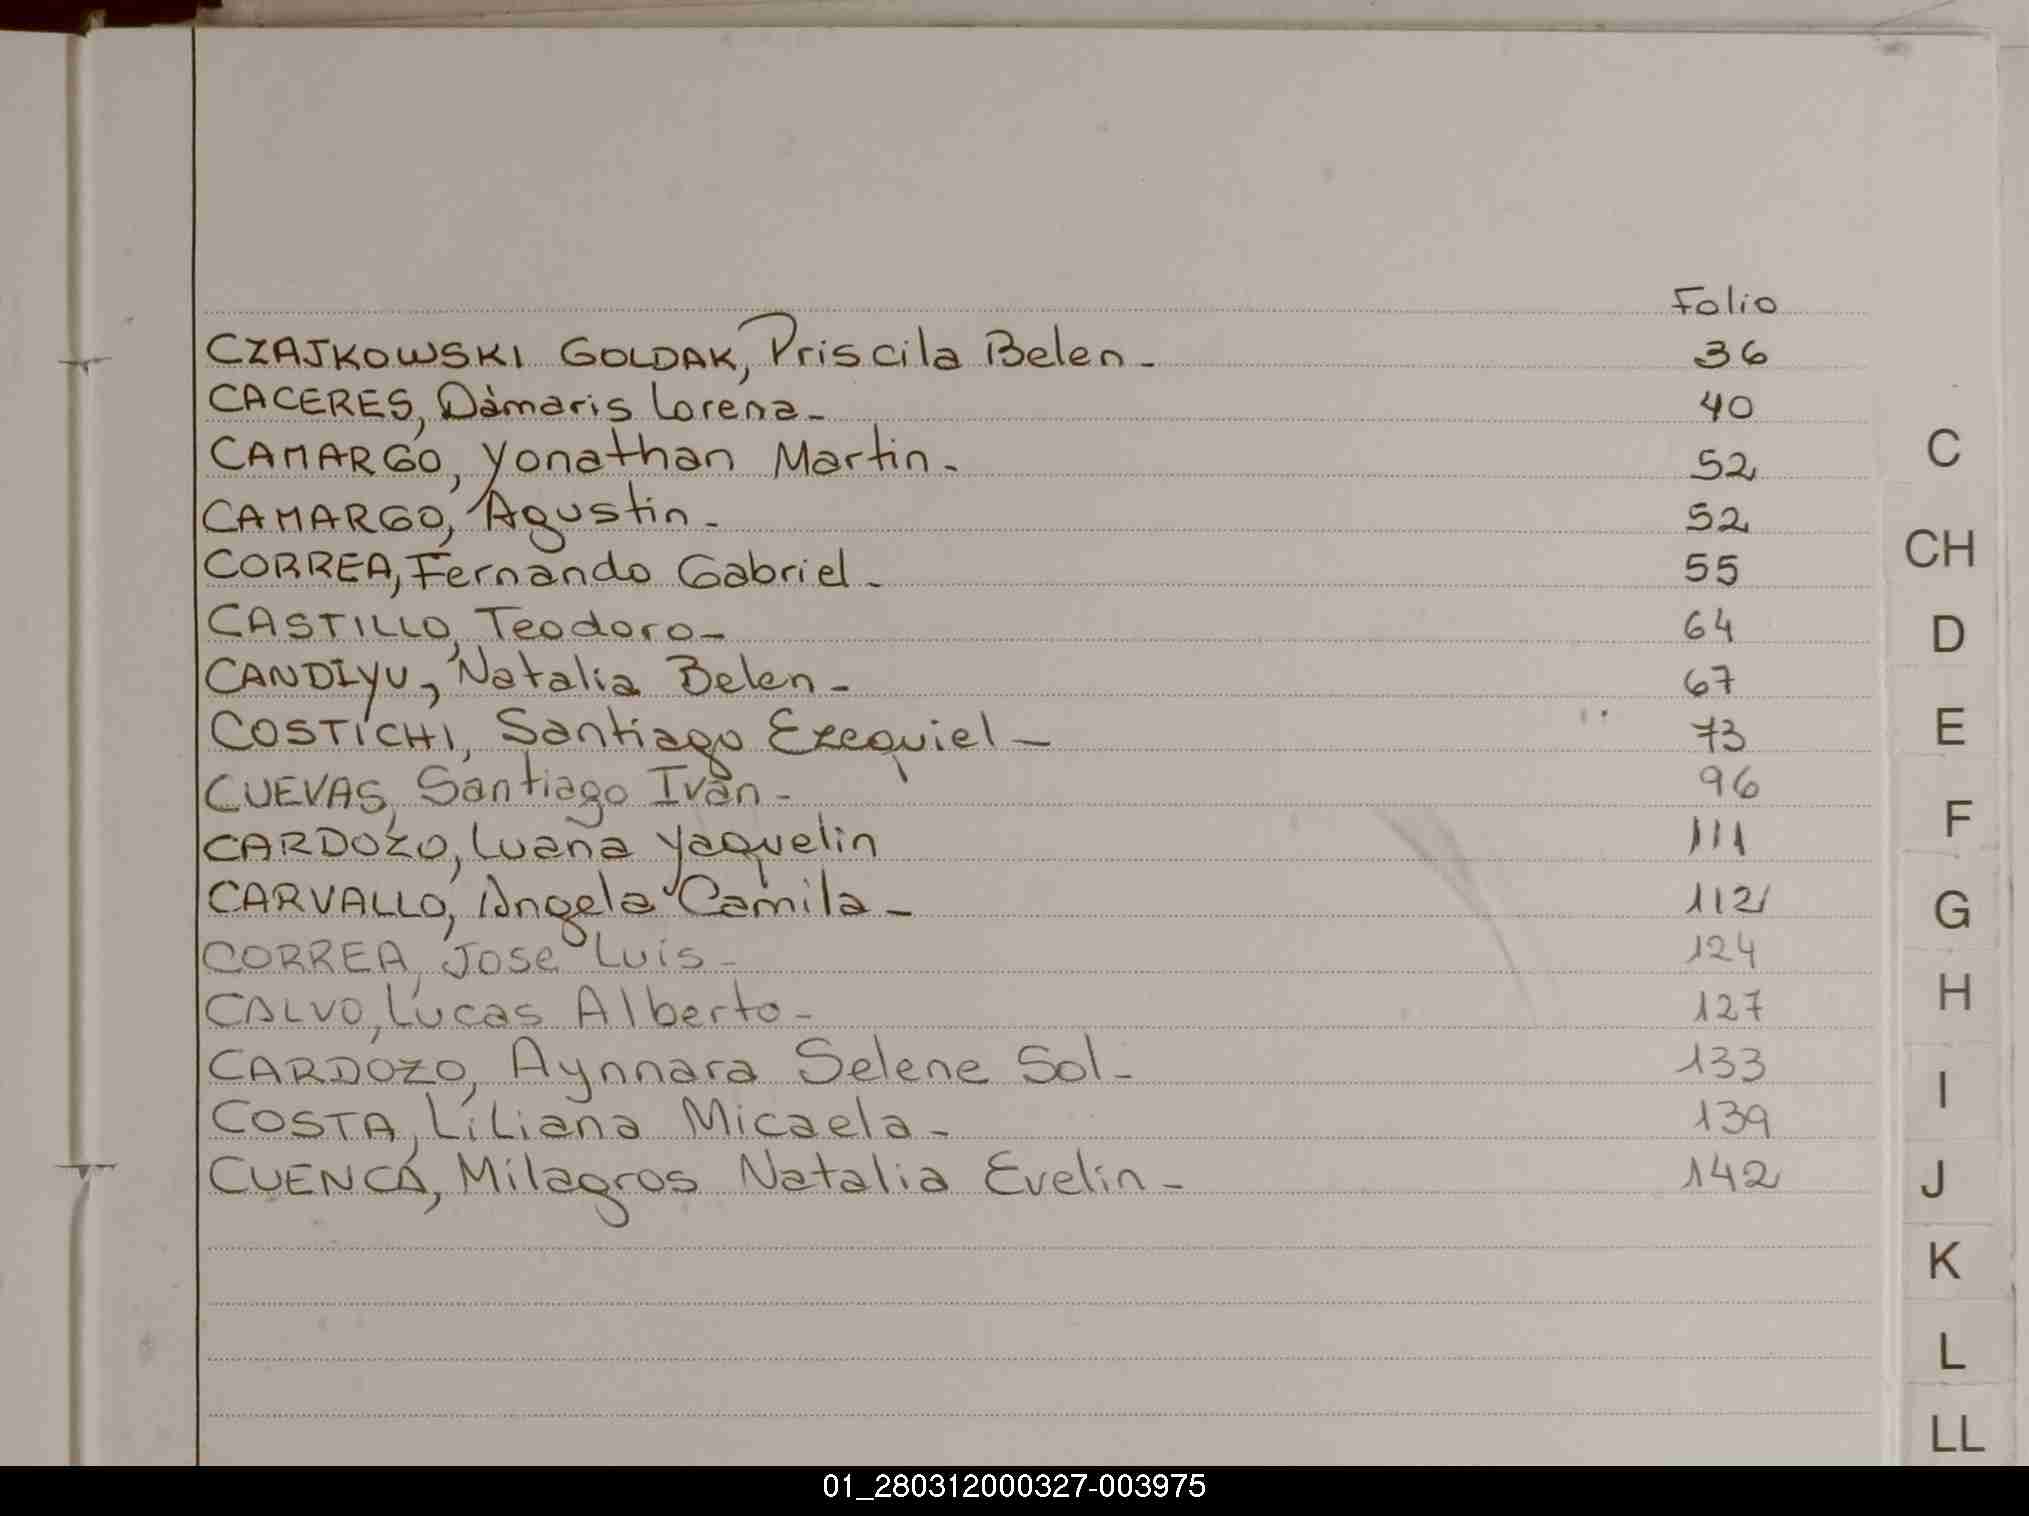 Folio
CZAJKOWSKI GOLDAK, Priscila Belen- 36
CACERES, Dámaris Lorena- 40
CAMARGO, Yonathan Martin- 52
CAMARGO, Agustin- 52
CORREA, Fernando Gabriel- 55
CASTILLO, Teodoro- 64
CANDIYU, Natalia Belen- 67
COSTICHI, Santiago Ezequiel- 73
CUEVAS, Santiago Iván- 96
CARDOZO, Luana Yaquelin 111
CARVALLO, Angela Camila- 112
CORREA, Jose Luis- 124
CALVO, Lucas Alberto- 127
CARDOZO, Aynnara Selene Sol- 133
COSTA, Liliana Micaela- 139
CUENCA, Milagros Natalia Evelin- 142
C
CH
D
E
F
G
H
I
J
K
L
LL
01_280312000327-003975